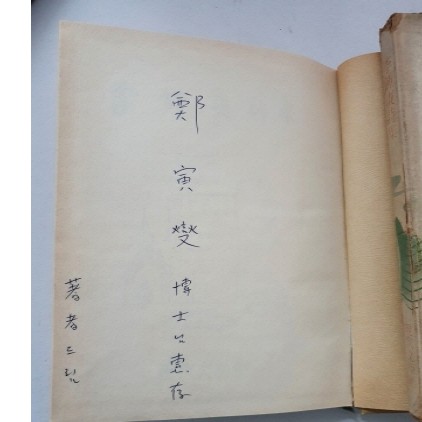 鄭寅燮 博士님 惠存
著者 드림